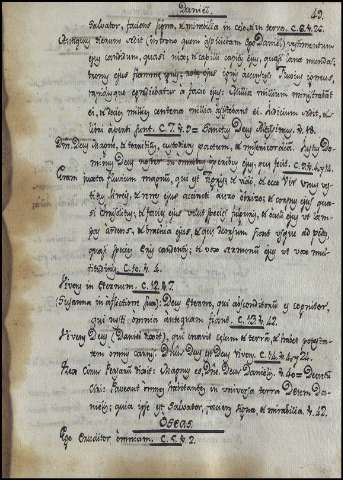 Daniel. 43.
Salvator, faciens signa, & mirabilia in celo, & in terra. C. 6. ℣. 22.
Antiquus dierum sedit (in trono quem aspiciebam ego Daniel) vestimentum
ejus candidum, quasi nix; & capilli capitis ejus, quasi lana munda;
tronus ejus flamme ignis; rote ejus ignis accensus. Fluvius igneus,
rapidusque egrediebatur a facie ejus: Millia millium ministrabant
ei, & decies millies centena millia assistebant ei. Judicium sedit, &
libri aperti sunt. C. 7. ℣. 9 =
Deus Magne, & terribilis, custodiens pactum, & misericordiam. Justus Do-
minus Deus noster in omnibus operibus ejus, que fecit. C. 9. ℣. 4
Eram juxta fluvium magnum, qui est Tigris; & vidi, & ecce Vir unus ves-
titus lineis, & renes ejus accincti auro obrizo; & corpus ejus qua-
si Crisolitus; & facies ejus velut species fulguris, & oculi ejus ut lam-
pas ardens, & brachia ejus, & que deorsum sunt usque ad pedes
quasi species eris candentis; & vox sermonum ejus ut vox mul-
titudinis. C. 10. ℣. 4.
Vivens in Eternum. C. 12. ℣. 7.
(Susanna in afflictione sua): Deus Eterne, qui absconditorum es cognitor,
qui nosti omnia antequam fiant. C. 13. ℣. 42.
Vivens Deus (Daniel dixit), qui creavit celum, & terram, & habet potesta-
tem omnis carnis. Deus Vivens. C. 14. ℣. 4 24.
Magnus es, Dne. Deus Danielis. ℣. 40 =
Paveant omnes habitantes in universa terra Deum Da-
nielis; quia ipse est Salvator, faciens signa, & mirabilia. ℣. 42.
Oseas.
Ego Eruditor omnium. C. 5. ℣. 2.